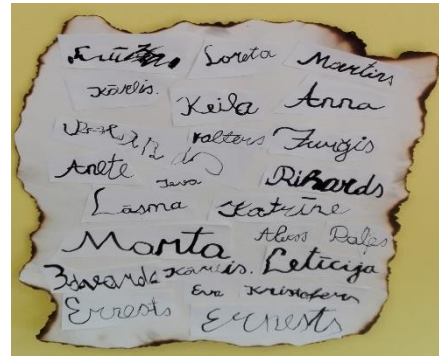 Loreta Martins
Kārlis. Keila Anna
Valters Jurģis
Anete Ieva Rihards
Lāsma Katrīne
Marta Alekss Ralfs
Edvards Kārlis. Letīcija
Eva Kristofers
Ernests Ernests